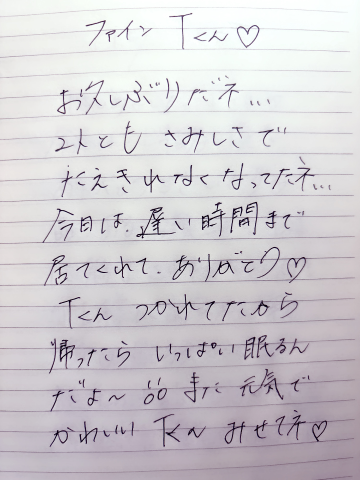 ファイン Tくん♡
お久しぶりだネ...
2人とも さみしさで
たえきれなくなってたネ...
今日は、遅い時間まで
居てくれて、ありがとう♡
Tくん つかれてたから
帰ったら いっぱい眠るん
だよ〜 また 元気で
かわいい Tくん みせてネ♡